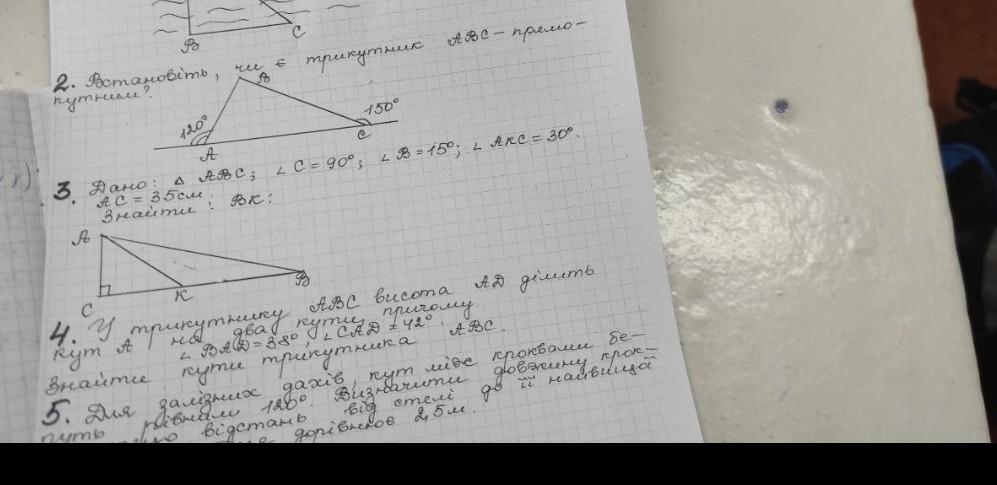 B
C
2. Встановіть, чи є трикутник ABC - прямо-
кутним?
B
120°
150°
A
C
3. Дано: △ ABC; ∠C = 90°; ∠B = 15°; ∠AKC = 30°.
AC = 35см.
Знайти: BK:
A
C
K
B
4. У трикутнику ABC висота AD ділить
кут A на два кути, причому
∠BAD = 38°, ∠CAD = 42°.
Знайти кути трикутника ABC.
5. Для залізних дахів, кут між кроквами бе-
руть рівним 120°. Визначити довжину крок-
відстань від стелі до її найвищої
дорівнює 2,5м.